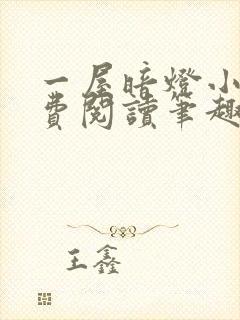 一屋暗燈小
費閱讀筆趣
王鑫